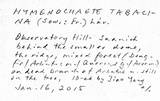 HYMENOCHAETE TABACI-
NA (Sow.: Fr.) Lév.
Observatory Hill - Saanich
behind the smaller dome,
the ridge, mixed forest (Doug.
Fir/Arbutus/Quercus g./Acer m.)
on dead branch of Arbutus m. still
on the tree, leg. & det by
Jan. 16, 2015